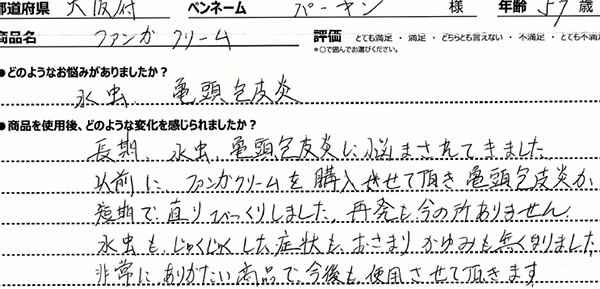 都道府県 大阪府 ペンネーム パーキン 様 年齢 57 歳
商品名 ファンガクリーム 評価 とても満足・満足・どちらとも言えない・不満足・とても不満
*○で囲んでお選びください。
●どのようなお悩みがありましたか?
水虫、亀頭包皮炎
●商品を使用後、どのような変化を感じられましたか?
長期、水虫、亀頭包皮炎に悩まされてきました
以前に、ファンガクリームを購入させて頂き亀頭包皮炎が、
短期で直りびっくりしました。再発も今の所ありません
水虫も、じゅくじゅくした症状も、おさまりかゆみも無くなりました
非常にありがたい商品で今後も使用させて頂きます